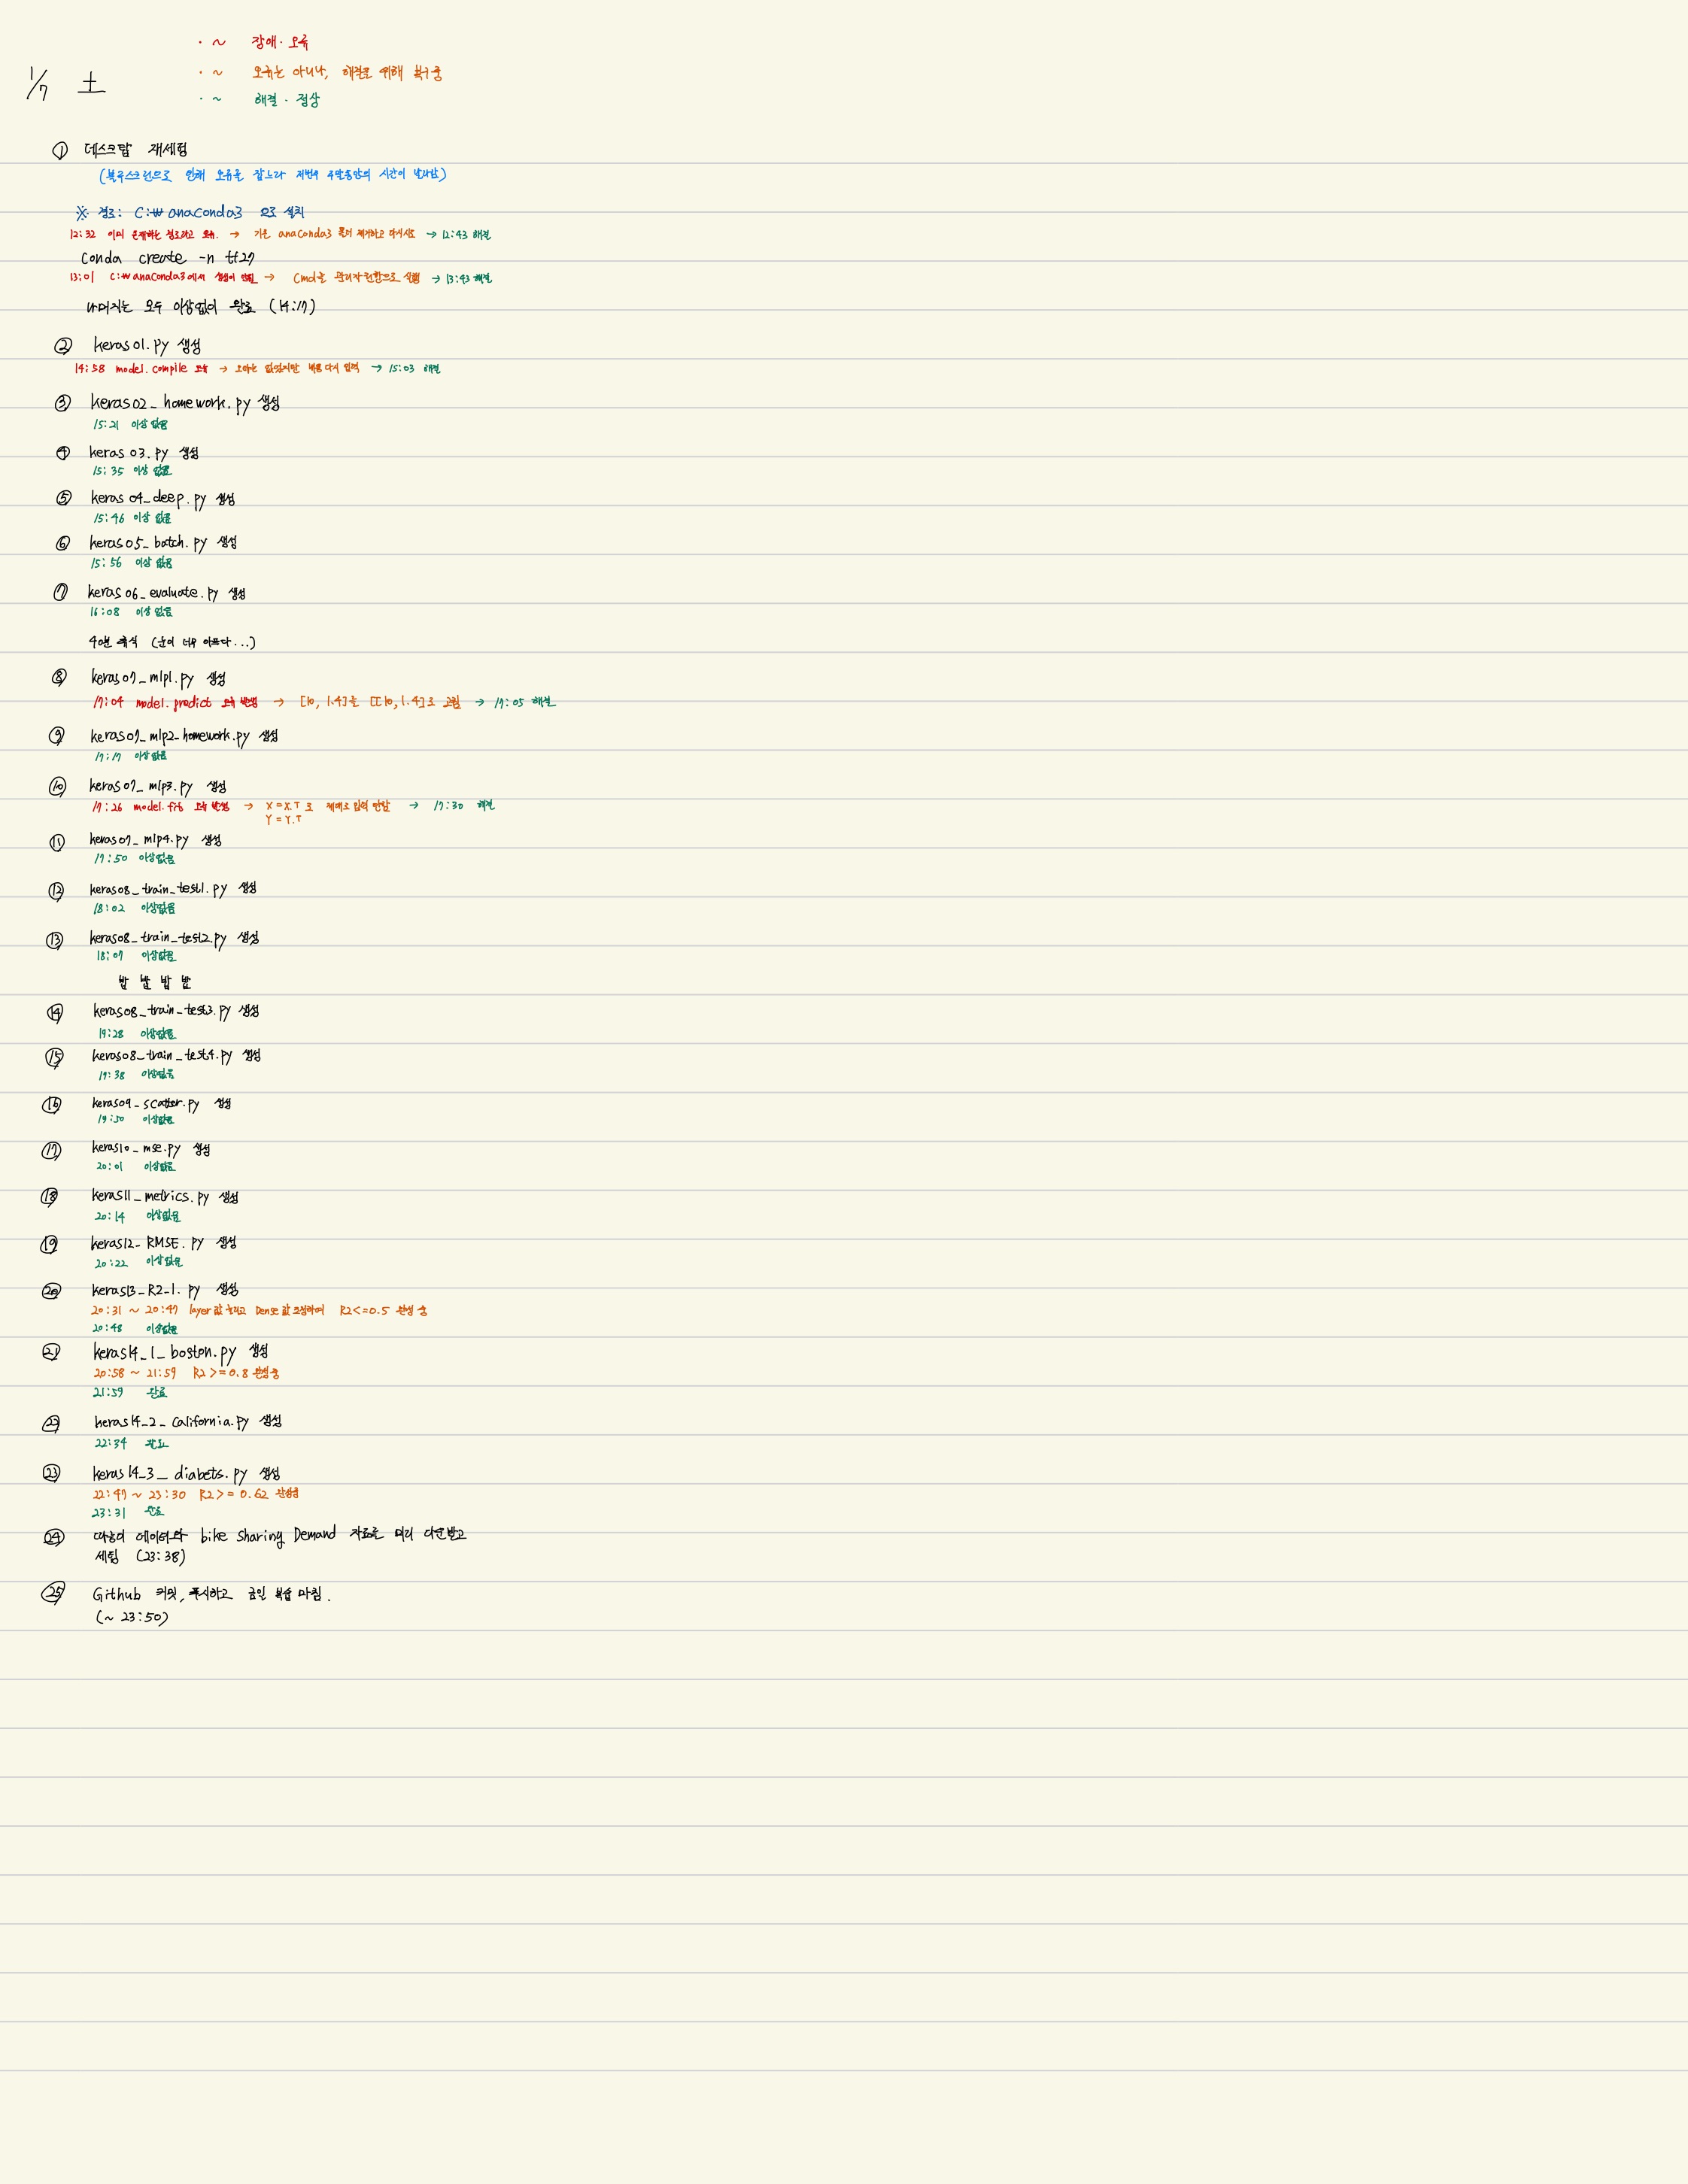 · ~ 장애 · 오류
· ~ 오류는 아니나, 해결을 위해 복구중
· ~ 해결 · 정상
1/7 土
① 데스크탑 재세팅
(블루스크린으로 인해 오류을 잡느라 저번주 주말동안의 시간이 날라감)
※ 경로: C:₩ anaconda3 으로 설치
12:32 이미 존재하는 경로라고 오류. → 기존 anaconda3 폴더 제거하고 다시시도 → 12:43 해결
Conda create -n tf27
13:01 C:₩anaconda3에서 생성이 안됨 → Cmd를 관리자권한으로 실행 → 13:43 해결
나머지는 모두 이상없이 완료 (14:17)
② keras01.py 생성
14:58 model.compile 오류 → 오타는 없었지만 다시 입력 → 15:03 해결
③ keras02_homework.py 생성
15:21 이상 없음
④ keras03.py 생성
15:35 이상 없음
⑤ keras04_deep.py 생성
15:46 이상 없음
⑥ keras05_batch.py 생성
15:56 이상 없음
⑦ keras06_evaluate.py 생성
16:08 이상 없음
40분 휴식 (눈이 너무 아프다...)
⑧ keras07_mlp1.py 생성
17:04 model.predict 오류 발생 → [10, 1.4]을 [[10, 1.4]로 고침 → 17:05 해결
⑨ keras07_mlp2_homework.py 생성
17:17 이상 없음
⑩ keras07_mlp3.py 생성
17:26 model.fit 오류 발생 → X = X.T 로 제대로 입력 안함 → 17:30 해결
Y = Y.T
⑪ keras07_mlp4.py 생성
17:50 이상없음
⑫ keras08_train_test1.py 생성
18:02 이상없음
⑬ keras08_train_test2.py 생성
18:07 이상없음
밥 밥 밥 밥
⑭ keras08_train_test3.py 생성
19:28 이상없음
⑮ keras08_train_test4.py 생성
19:38 이상없음
⑯ keras09_scatter.py 생성
19:50 이상없음
⑰ keras10_mse.py 생성
20:01 이상없음
⑱ keras11_metrics.py 생성
20:14 이상없음
⑲ keras12_RMSE.py 생성
20:22 이상없음
⑳ keras13_R2_1.py 생성
20:31 ~ 20:47 layer 값 늘리고 Dense 값 조정하여 R2<=0.5 완성 중
20:48 이상없음
㉑ keras14_1_boston.py 생성
20:58 ~ 21:59 R2 >= 0.8 완성중
21:59 완료
㉒ keras14_2_california.py 생성
22:34 완료
㉓ keras14_3_diabets.py 생성
22:47 ~ 23:30 R2 >= 0.62 완성중
23:31 완료
㉔ 따릉이 데이터와 bike sharing Demand 자료를 미리 다운받고
세팅 (23:38)
㉕ Github 커밋, 푸시하고 금일 복습 마침.
(~ 23:50)